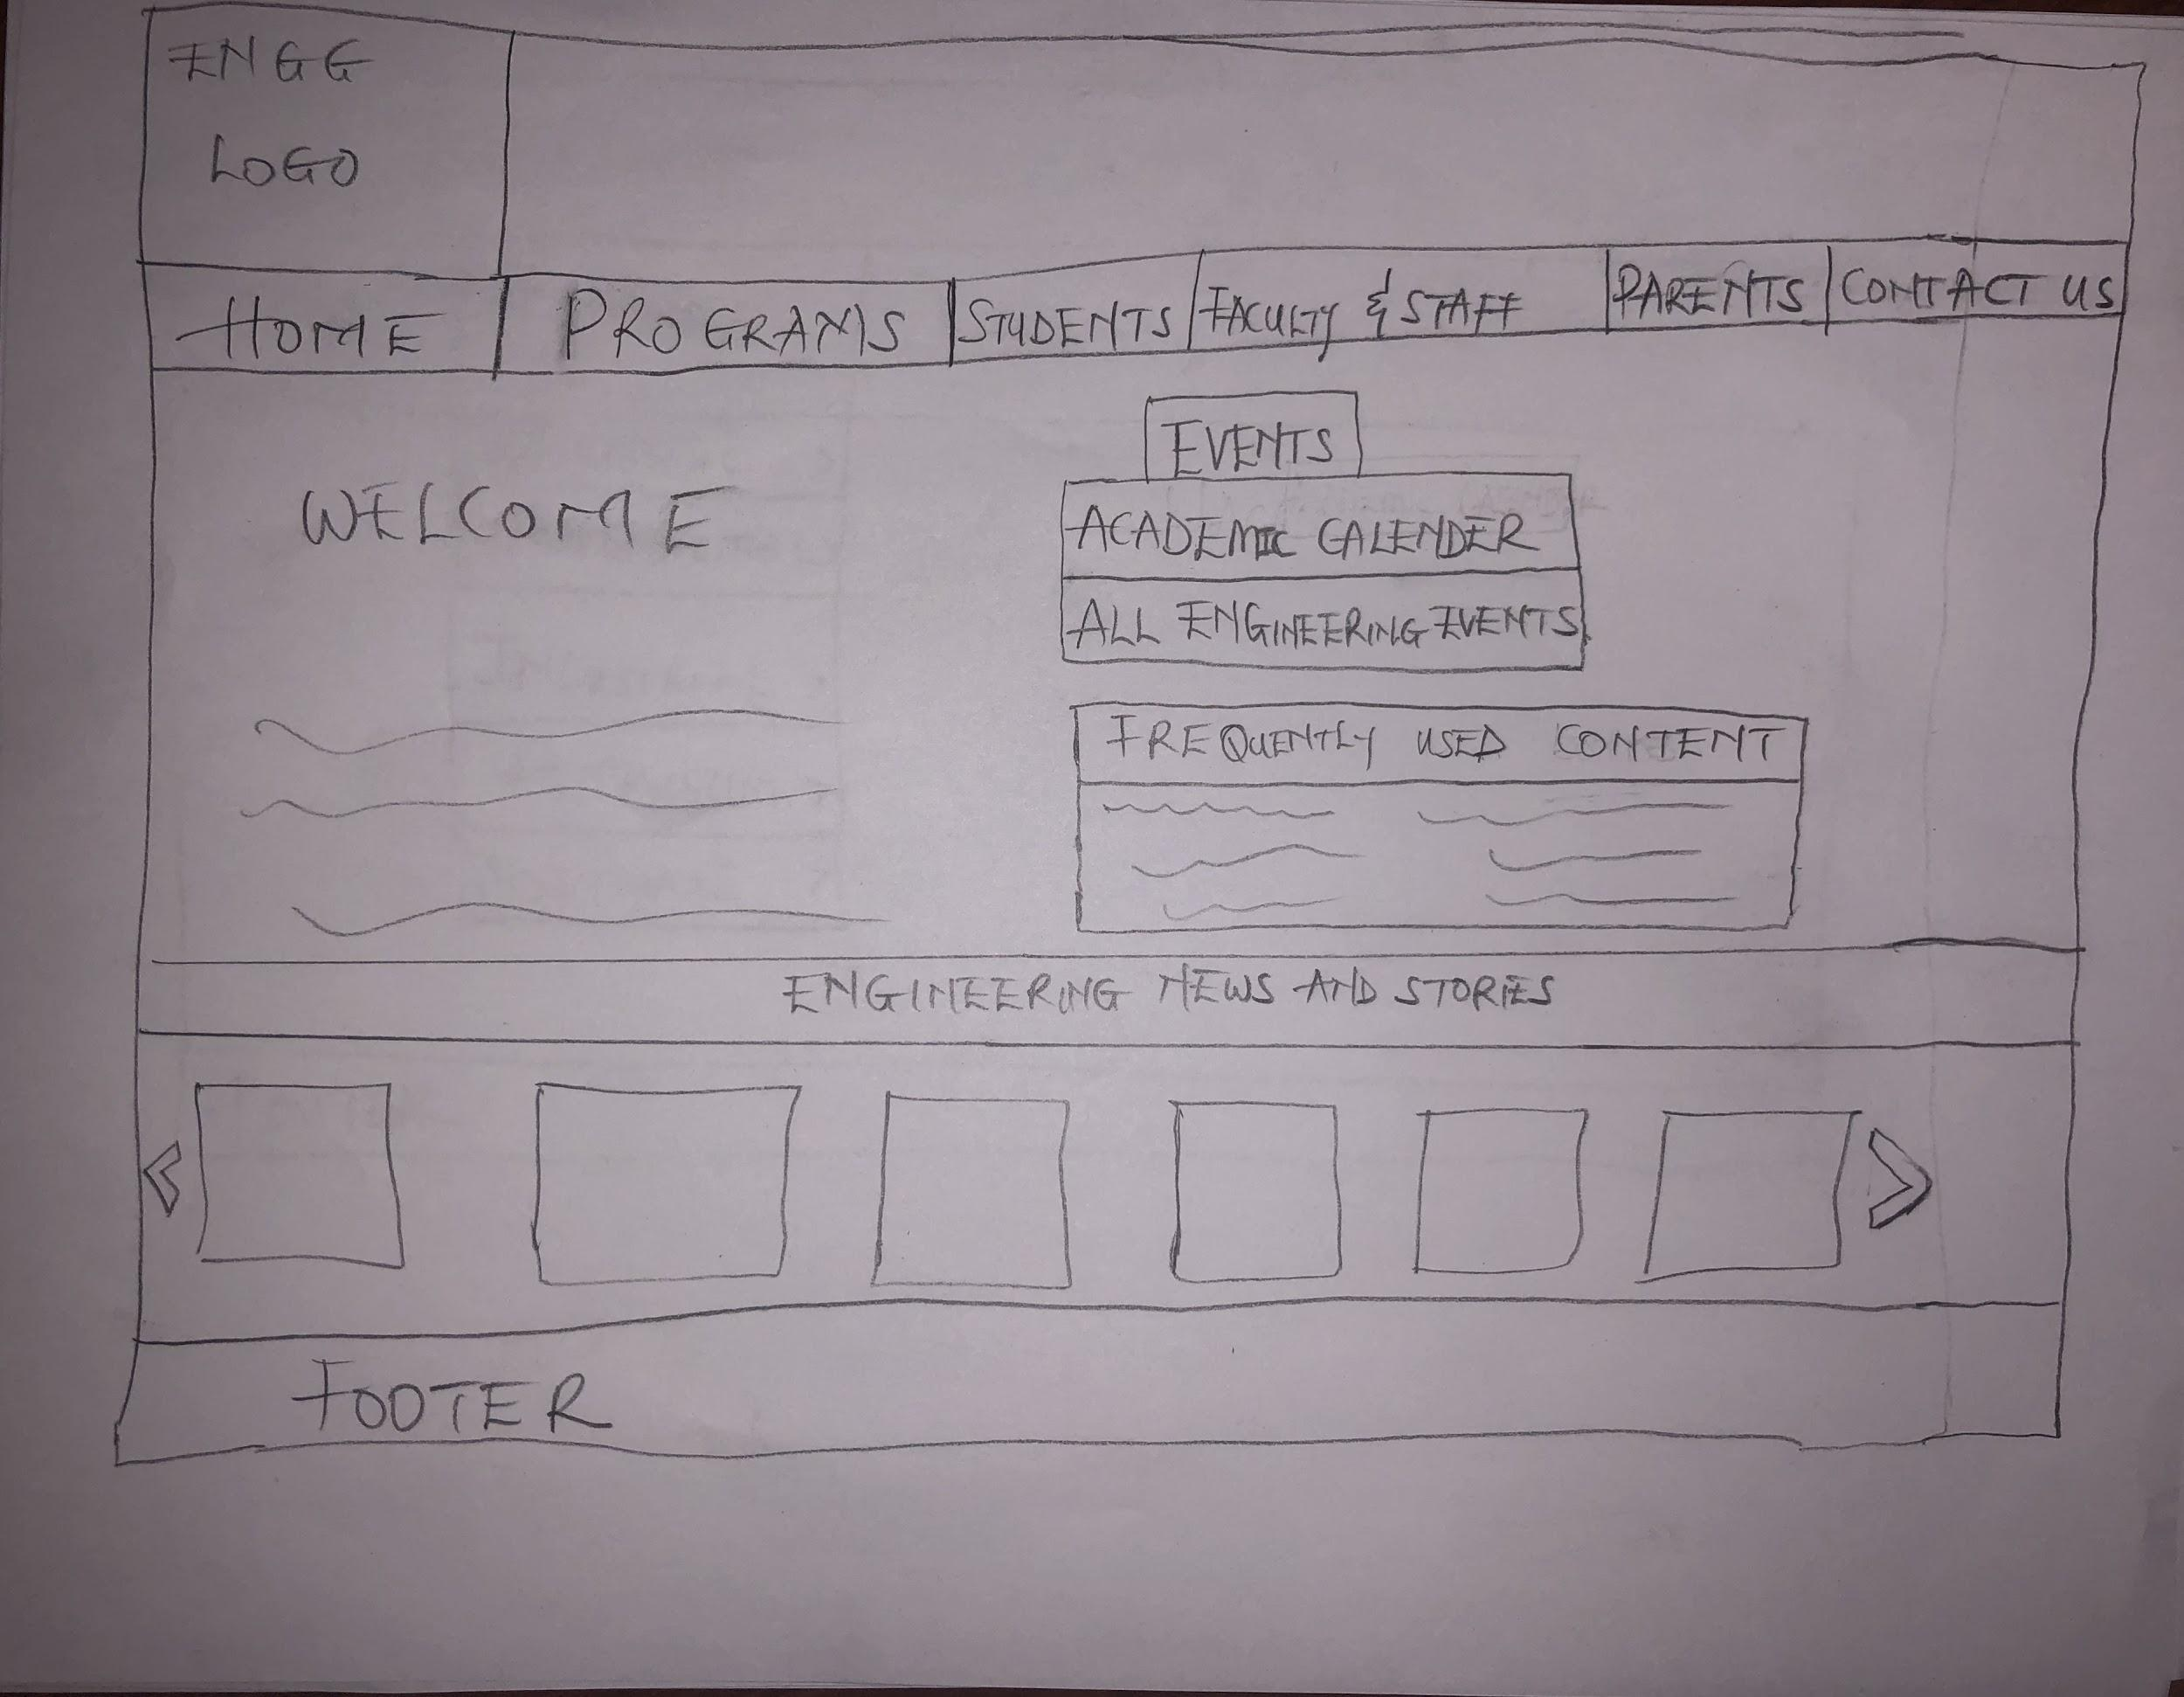 ENGG
LOGO
HOME
PROGRAMS
STUDENTS
FACULTY & STAFF
PARENTS
CONTACT US
WELCOME
EVENTS
ACADEMIC CALENDER
ALL ENGINEERING EVENTS
FREQUENTLY USED CONTENT
ENGINEERING NEWS AND STORIES
FOOTER